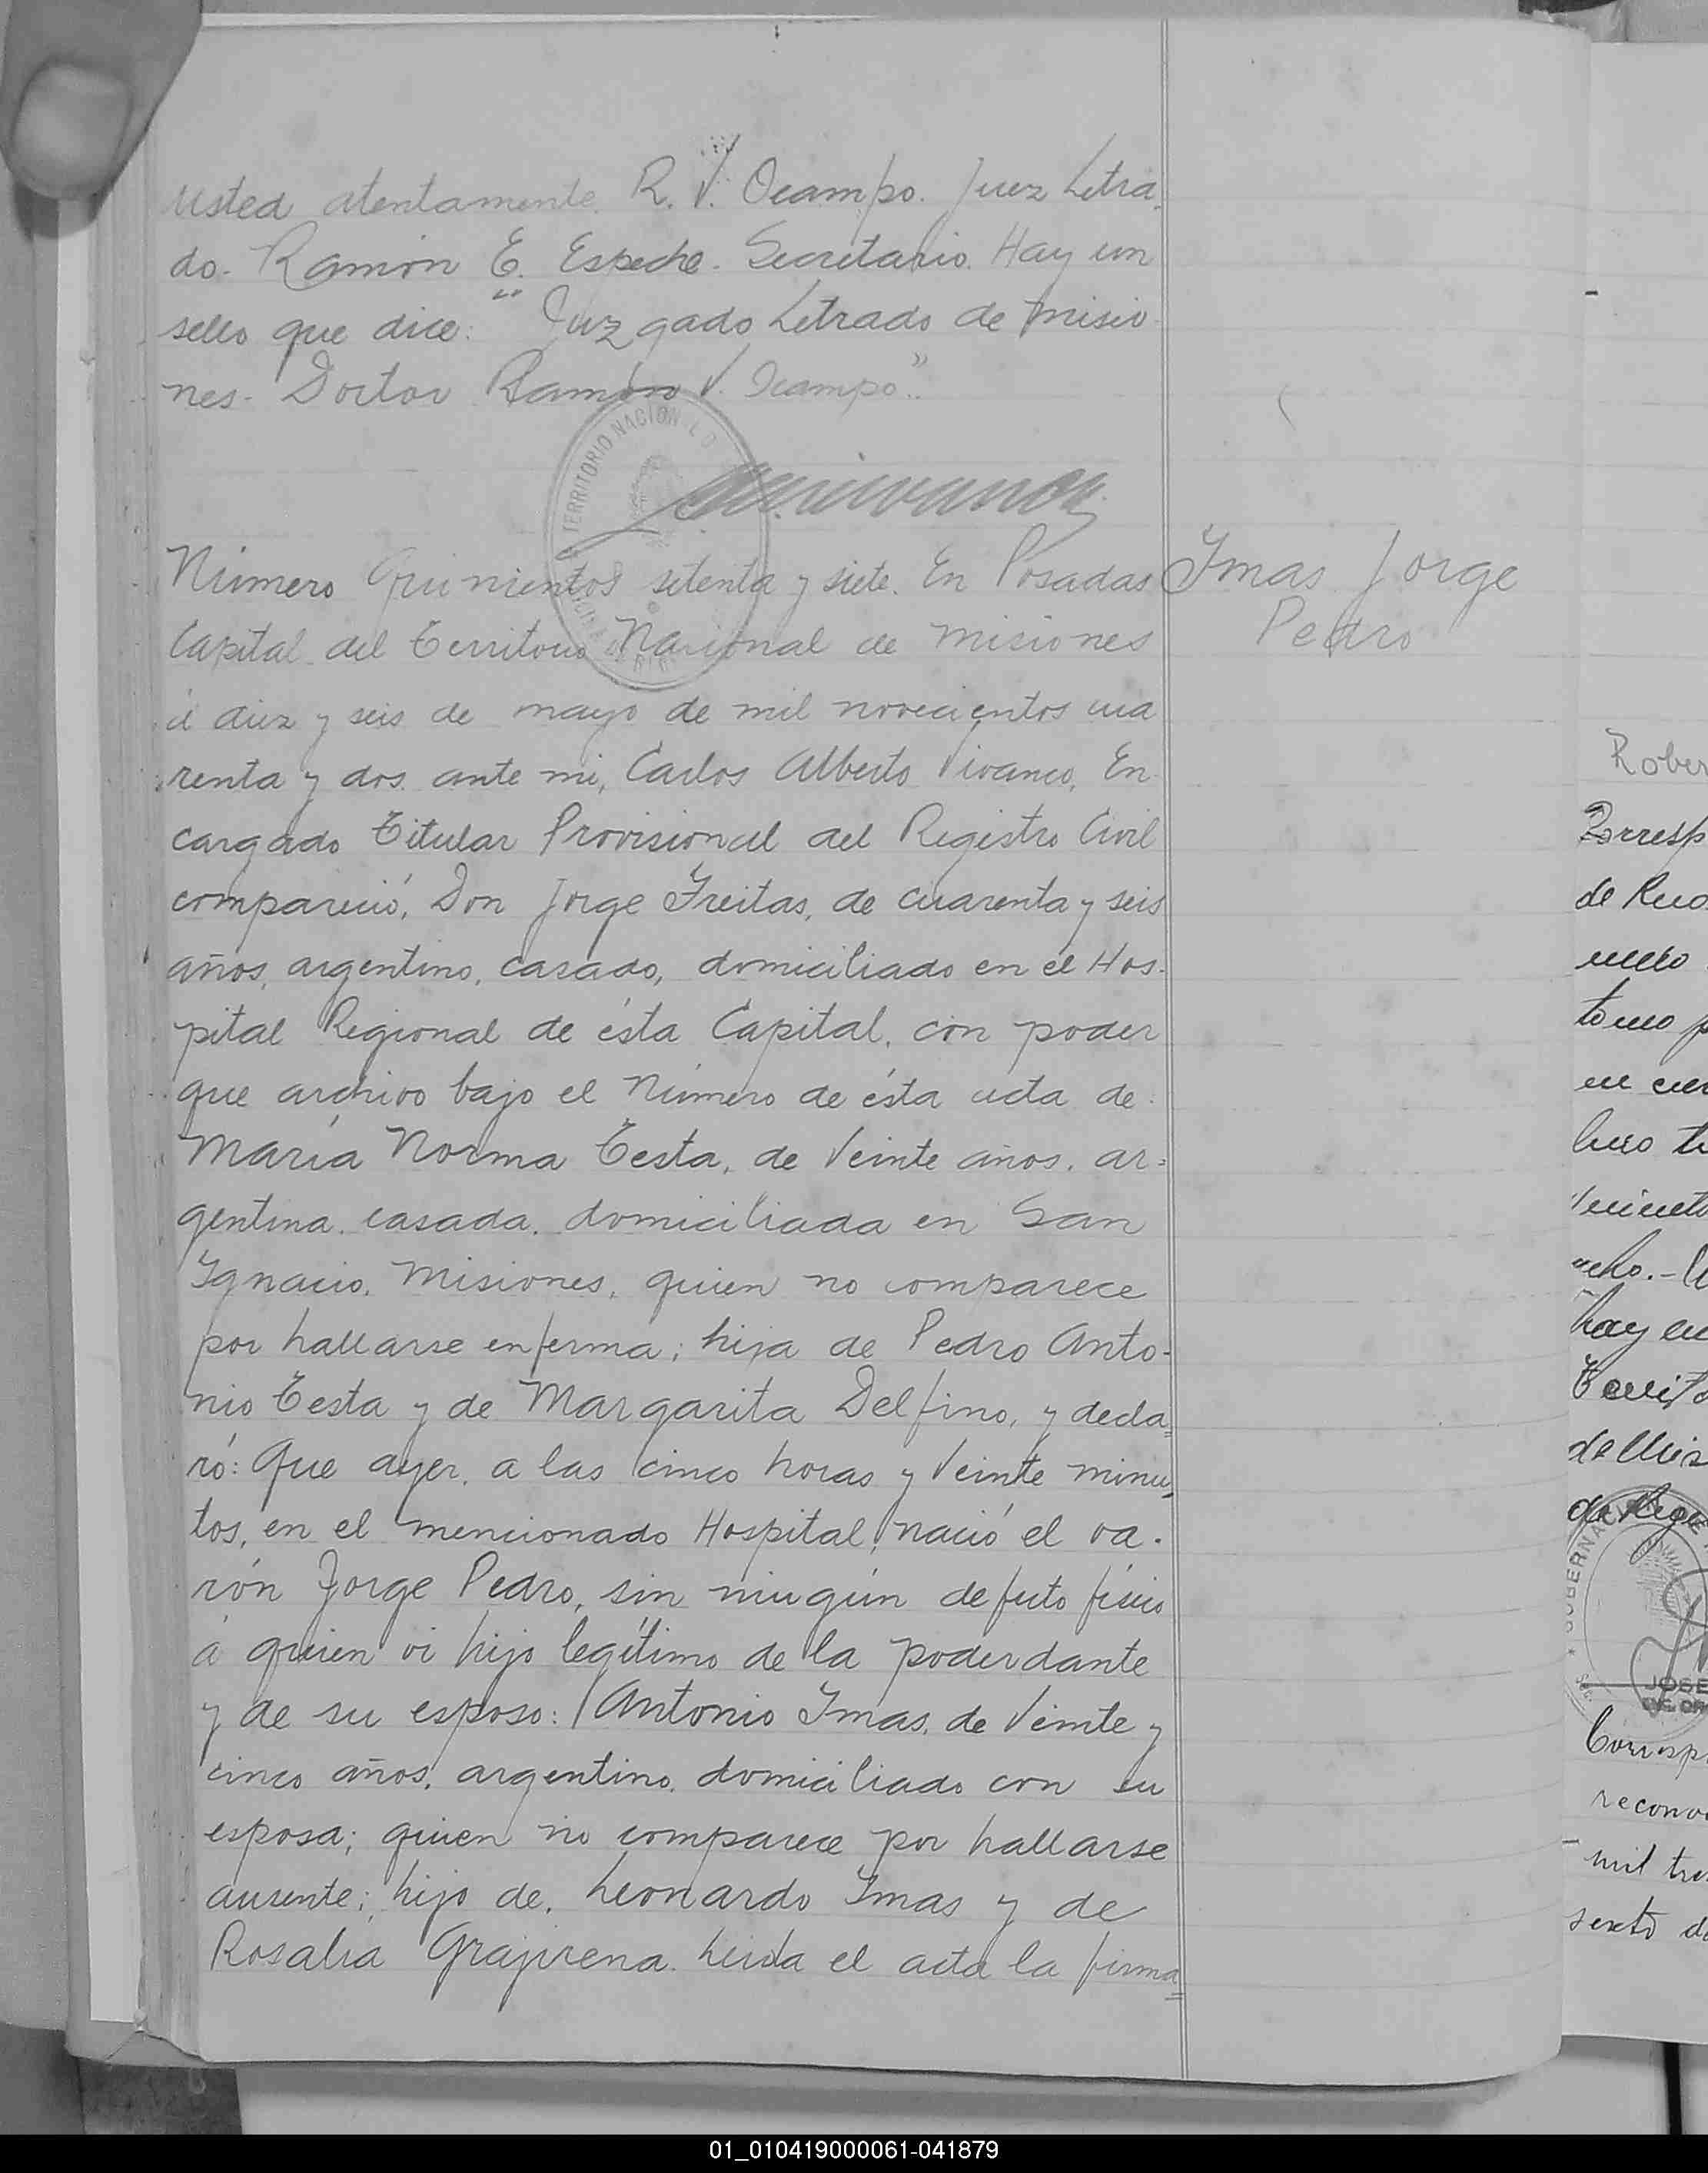 usted atentamente. R. V. Ocampo. Juez Letra
do. Ramón E. Espeche. Secretario. Hay un
sello que dice: "Juzgado Letrado de Misio
nes. Doctor Ramón V. Ocampo".
TERRITORIO NACIONAL D
Número Quinientos setenta y siete. En Posadas
Capital del Territorio Nacional de Misiones
á diez y seis de mayo de mil novecientos cua
renta y dos. ante mí, Carlos Alberto Vivanco, En
cargado Titular Provisional del Registro Civil
compareció, Don Jorge Freitas, de cuarenta y seis
años, argentino, casado, domiciliado en el Hos-
pital Regional de ésta Capital, con poder
que archivo bajo el Número de ésta acta de
María Norma Testa, de Veinte años, ar=
gentina, casada, domiciliada en San
Ignacio, Misiones, quien no comparece
por hallarse enferma; hija de Pedro Anto-
nio Testa y de Margarita Delfino, y decla=
ró: Que ayer, a las cinco horas y Veinte minu=
tos, en el mencionado Hospital, nació el va-
rón Jorge Pedro, sin ningún defecto físico
á quien ví hijo legítimo de la poderdante
y de su esposo: Antonio Imas, de Veinte y
cinco años, argentino, domiciliado con su
esposa; quien no comparece por hallarse
ausente; hijo de, Leonardo Imas y de
Rosalia Grajirena. Leída el acta la firma=
Imas Jorge
Pedro
Rober
de Reco
tomo p
hay en
GOBERNACI
JOSE
Corresp
recono
mil tre
sexto de
01_010419000061-041879